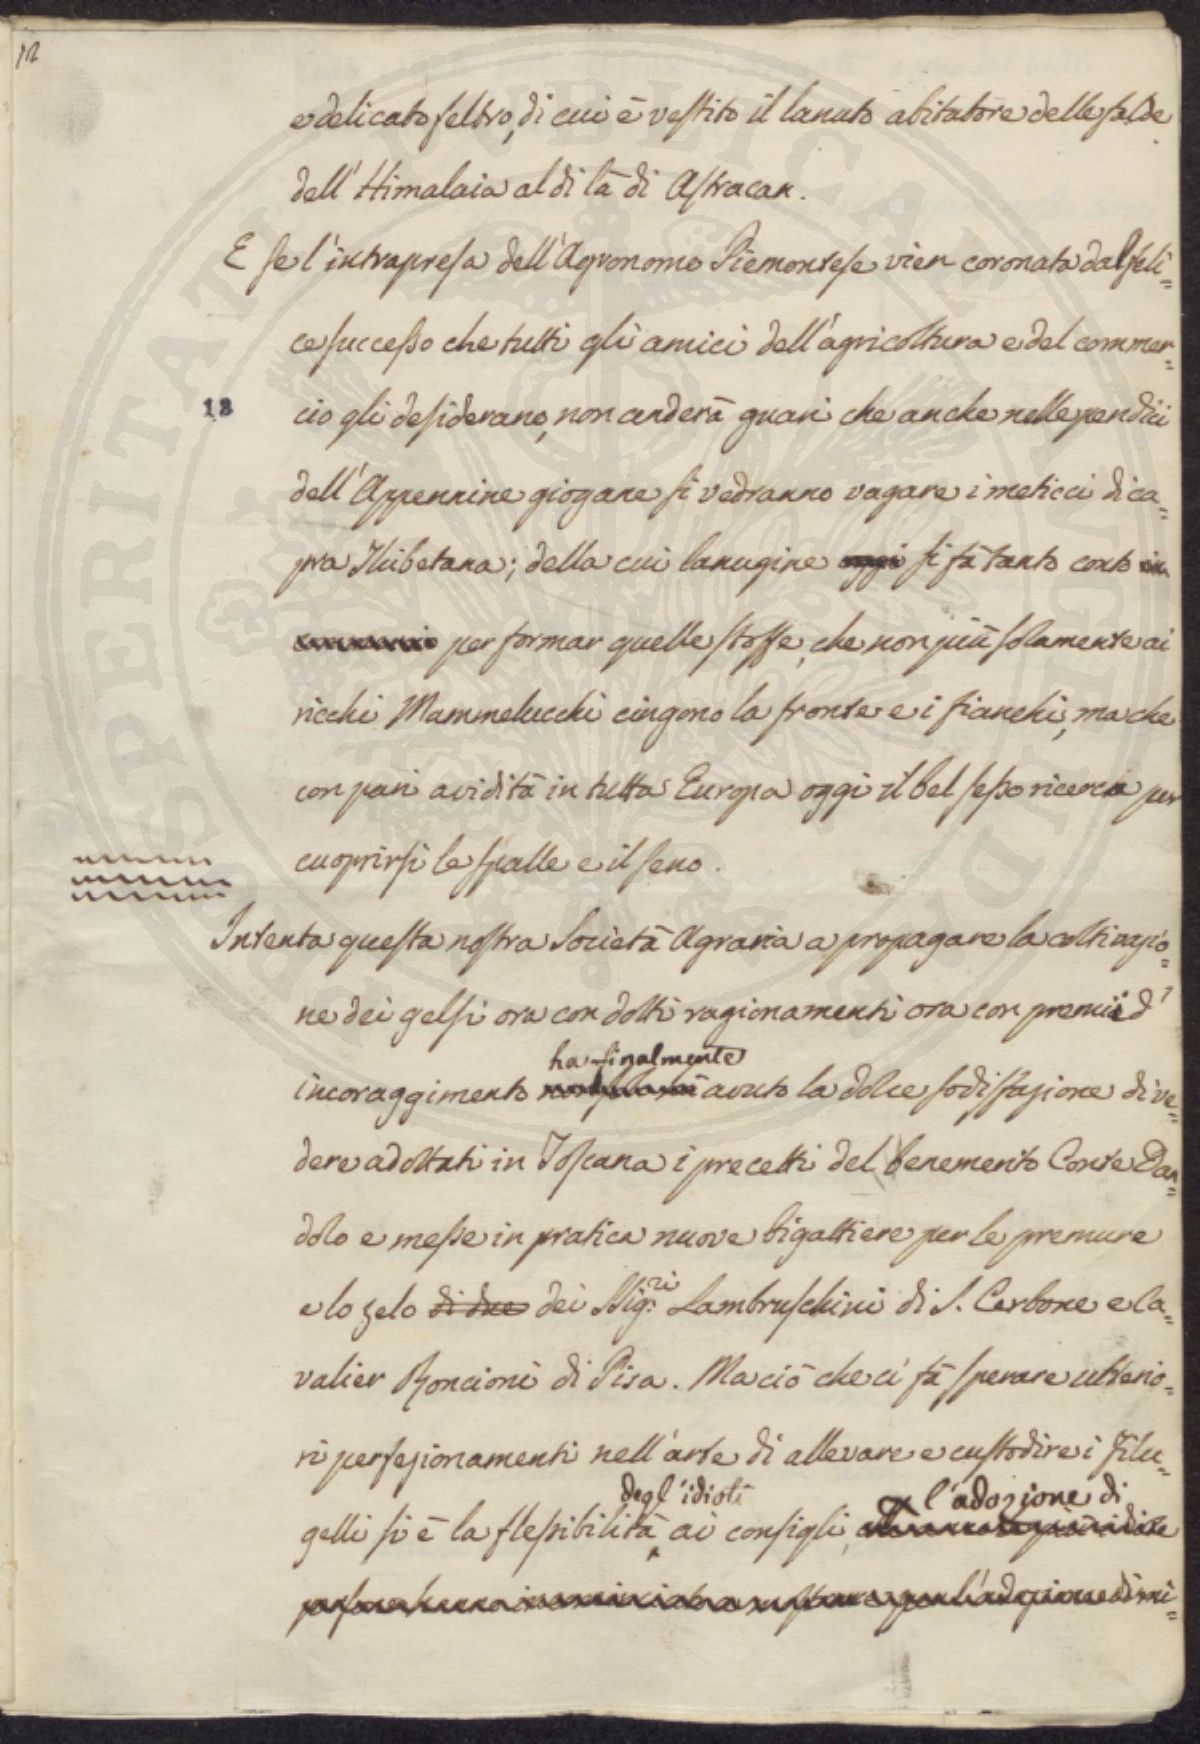 12
e delicato feltro, di cui è vestito il lanuto abitatore delle falde
dell' Himalaia al di là di Astracan.
E se l'intrapresa dell'Agronomo Piemontese vien coronata dal feli=
ce successo che tutti gli amici dell'agricoltura e del commer=
12
cio gli desiderano, non anderà guari che anche nelle pendici
dell'Appennine giogane si vedranno vagare i meticci di ca=
pra Thibetana; della cui lanugine oggi si fà tanto conto
per formar quelle stoffe, che non più solamente ai
ricchi Mammelucchi cingono la fronte e i fianchi, ma che
con pari avidità in tutta Europa oggi il bel sesso ricerca per
cuoprirsi le spalle e il seno.
Intenta questa nostra Società Agraria a propagare la coltivazio=
ne dei gelsi ora con dotti ragionamenti ora con premii d'
ha finalmente
incoraggimento avuto la dolce sodisfazione di ve=
dere adottati in Toscana i precetti del benemerito Conte Dan=
dolo e messe in pratica nuove bigattiere per le premure
e lo zelo di due dei Sigg.ri Lambruschini di S. Cerbone e Ca=
valier Roncioni di Pisa. Ma ciò che ci fà sperare ulterio=
ri perfezionamenti nell'arte di allevare e custodire i Filu=
degl'idioti l'adozione di
gelli si è la flessibilità ai consigli,
per l'adozione di mi=